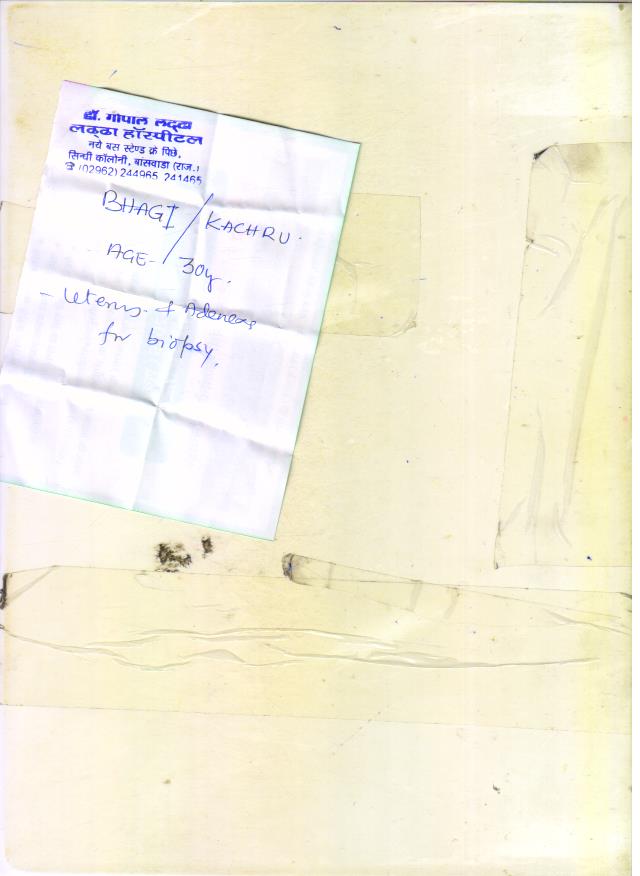 डॉ. गोपाल लद्ढा
लद्ढा हॉस्पीटल
नये बस स्टेण्ड के पिछे,
सिन्धी कॉलोनी, बांसवाडा (राज.)
☎ (02962) 244965, 241465
BHAGI / KACHRU.
AGE- / 30y.
- Uterus & Adenexa
for biopsy.